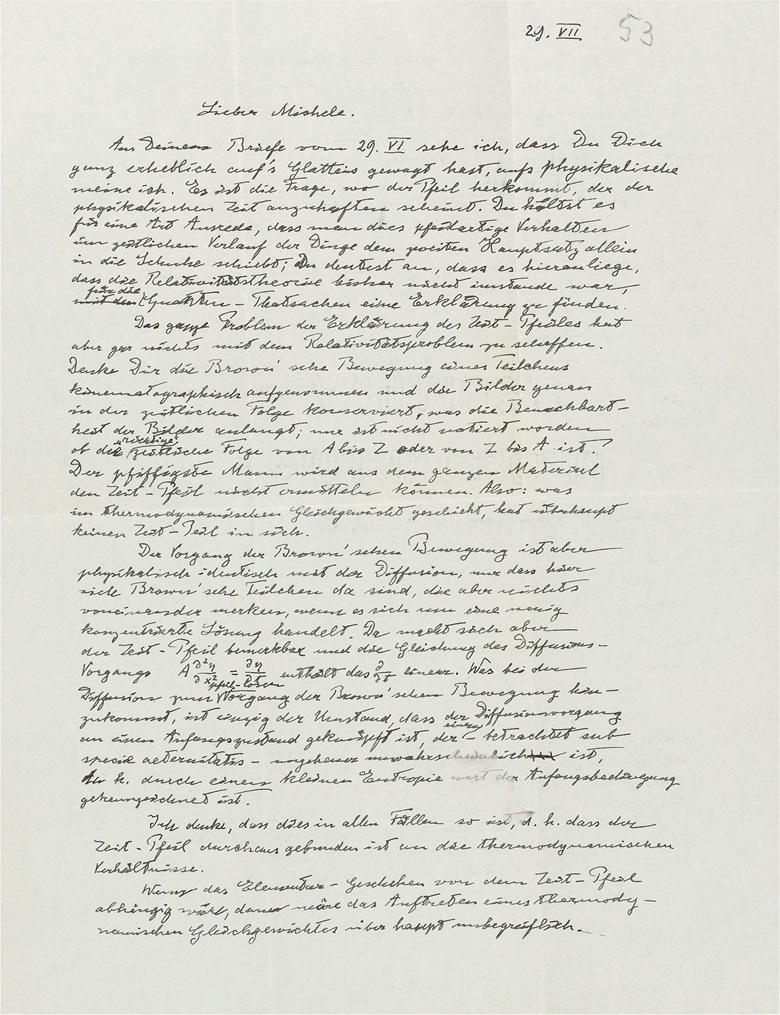 29. VII 53
Lieber Michele.
Aus Deinem Briefe vom 29. VI sehe ich, dass Du Dich
ganz erheblich auf's Glatteis gewagt hast, aufs physikalische
meine ich. Es ist die Frage, wo der Pfeil herkommt, der der
physikalischen Zeit anzuhaften scheint. Du hältst es
für eine Art Ausrede, dass man dies pfeilartige Verhalten
im zeitlichen Verlauf der Dinge dem zweiten Hauptsatz allein
in die Schuhe schiebt; Du deutest an, dass es hieran liege,
dass die Relativitätstheorie bisher nicht imstande war,
für die
mit den Quanten-Thatsachen eine Erklärung zu finden.
Das ganze Problem der Erklärung des Zeit-Pfeiles hat
aber gar nichts mit dem Relativitätsproblem zu schaffen.
Denke Dir die Brown'sche Bewegung eines Teilchens
kinematographisch aufgenommen und die Bilder genau
in der zeitlichen Folge konserviert, was die Benachbart-
heit der Bilder anlangt; nur ist nicht notiert worden
"richtige"
ob die zeitliche Folge von A bis Z oder von Z bis A ist.
Der pfiffigste Mann wird aus dem ganzen Material
den Zeit-Pfeil nicht ermitteln können. Also: was
im thermodynamischen Gleichgewicht geschieht, hat überhaupt
keinen Zeit-Pfeil in sich.
Der Vorgang der Brown'schen Bewegung ist aber
physikalisch identisch mit der Diffusion, nur dass hier
viele Brown'sche Teilchen da sind, die aber nichts
voneinander merken, wenn es sich um eine wenig
konzentrierte Lösung handelt. Da macht sich aber
der Zeit-Pfeil bemerkbar und die Gleichung des Diffusions-
Vorgangs A ∂²η/∂x² = ∂η/∂t enthält das ∂/∂t linear. Was bei der
pfeil-losen
Diffusion zum Vorgang der Brown'schen Bewegung hin-
zukommt, ist einzig der Umstand, dass der Diffusionsvorgang
an einen Anfangszustand geknüpft ist, der – betrachtet sub
specie aeternitatis – ungeheuer unwahrscheinlich ist,
d. h. durch einen kleinen Entropie wert der Anfangsbedingung
gekennzeichnet ist.
Ich denke, dass dies in allen Fällen so ist, d. h. dass der
Zeit-Pfeil durchaus gebunden ist an die thermodynamischen
Verhältnisse.
Wenn das Elementar-Geschehen von dem Zeit-Pfeil
abhängig wäre, dann wäre das Auftreten eines thermody-
namischen Gleichgewichtes überhaupt unbegreiflich.